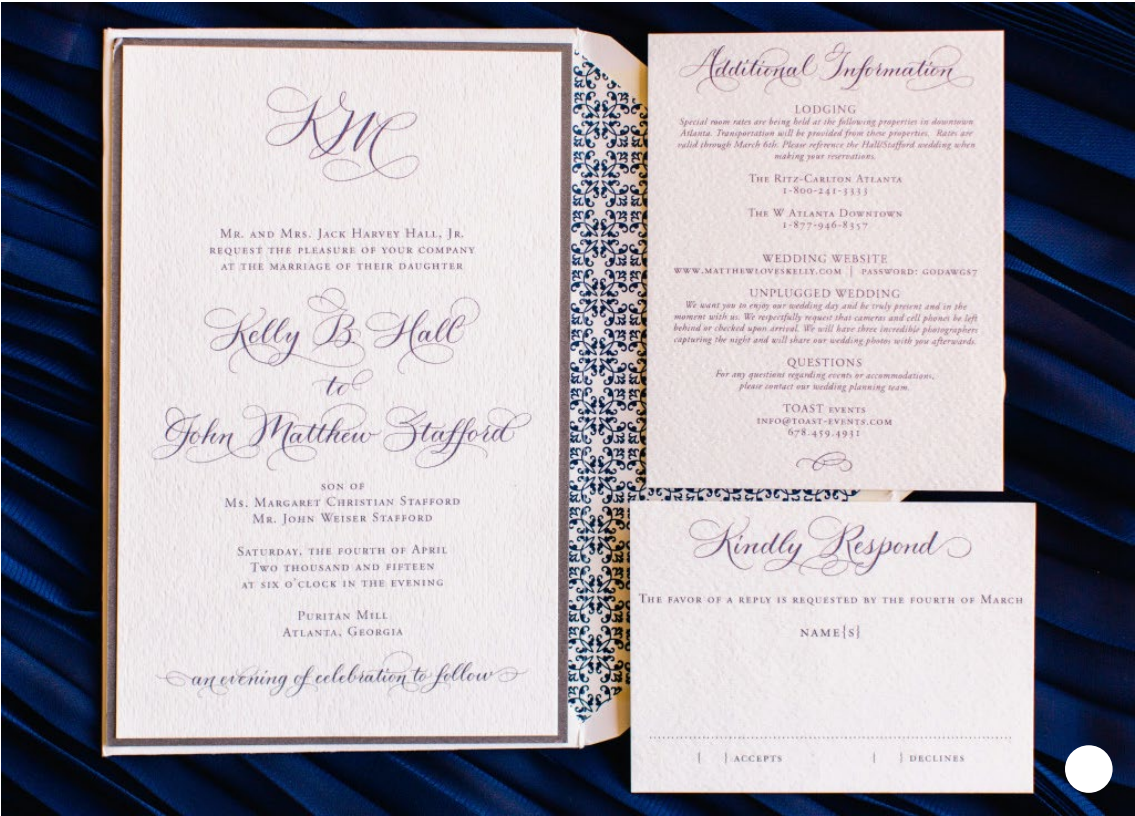 KMC
Mr. and Mrs. Jack Harvey Hall, Jr.
request the pleasure of your company
at the marriage of their daughter
Kelly B Hall
to
John Matthew Stafford
son of
Ms. Margaret Christian Stafford
Mr. John Weiser Stafford
Saturday, the fourth of April
Two thousand and fifteen
at six o'clock in the evening
Puritan Mill
Atlanta, Georgia
an evening of celebration to follow
Additional Information
LODGING
Special room rates are being held at the following properties in downtown
Atlanta. Transportation will be provided from these properties. Rates are
valid through March 6th. Please reference the Hall/Stafford wedding when
making your reservations.
The Ritz-Carlton Atlanta
1-800-241-3333
The W Atlanta Downtown
1-877-946-8357
WEDDING WEBSITE
www.matthewloveskelly.com | password: godawgs7
UNPLUGGED WEDDING
We want you to enjoy our wedding day and be truly present and in the
moment with us. We respectfully request that cameras and cell phones be left
behind or checked upon arrival. We will have three incredible photographers
capturing the night and will share our wedding photos with you afterwards.
QUESTIONS
For any questions regarding events or accommodations,
please contact our wedding planning team.
TOAST events
info@toast-events.com
678.459.4931
Kindly Respond
The favor of a reply is requested by the fourth of March
name{s}
{ } accepts { } declines